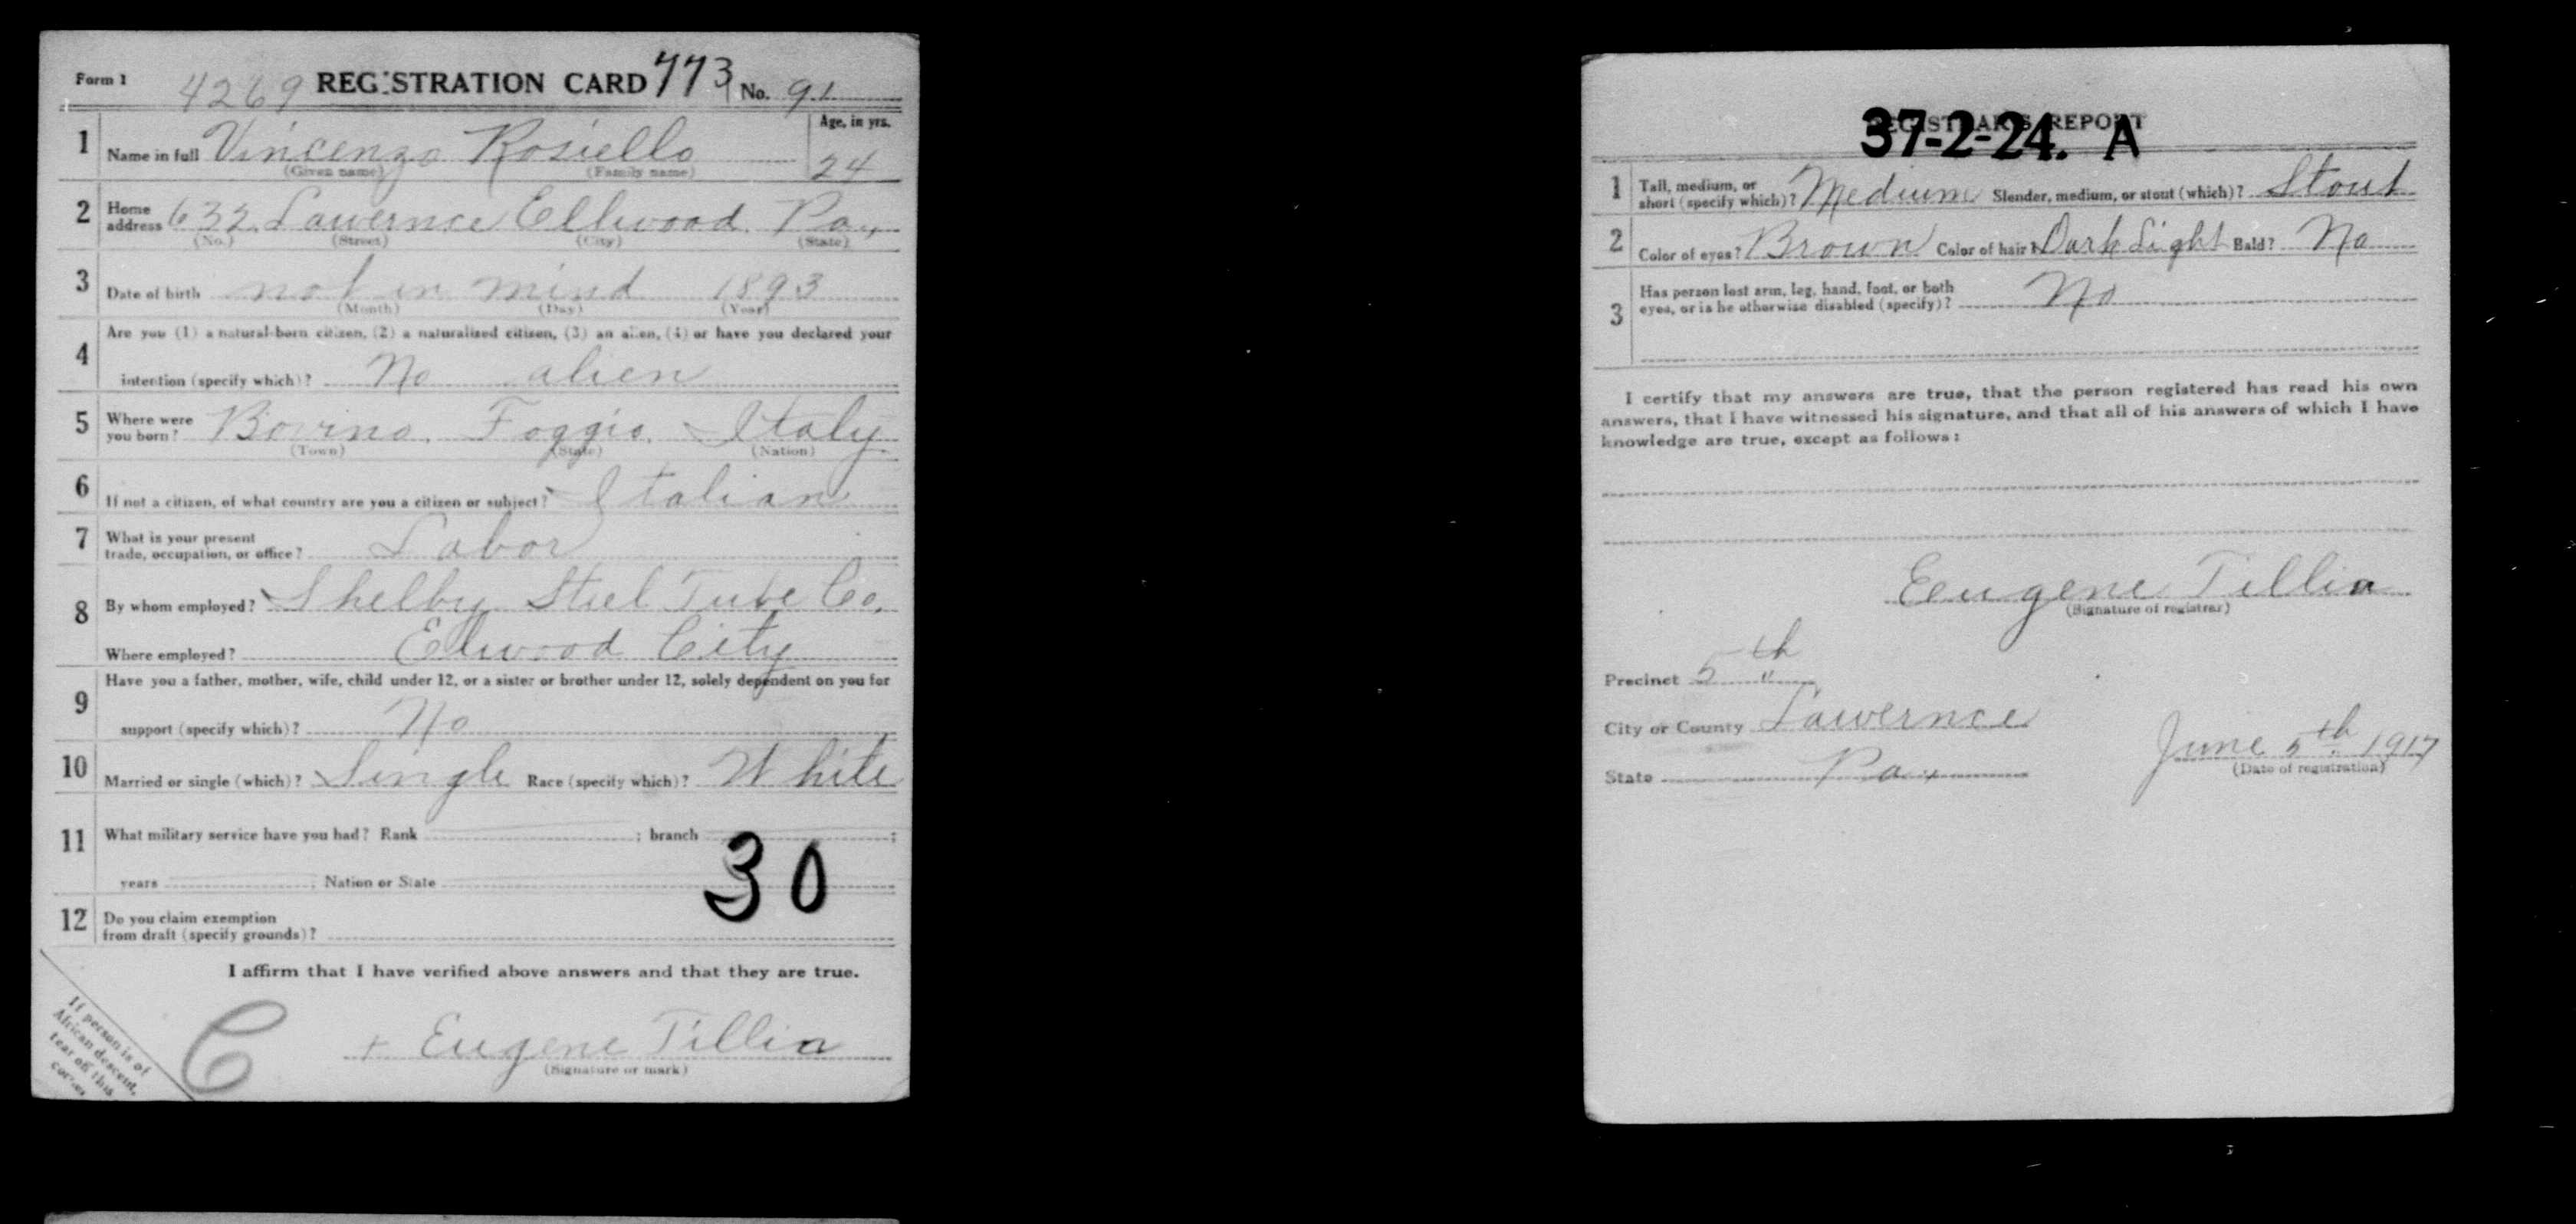 Form 1 4269 REGISTRATION CARD 773 No. 91
1 Name in full Vincenzo Rosiello Age, in yrs. 24
(Given name) (Family name)
2 Home address 632 Lawernce Ellwood Pa.
(No.) (Street) (City) (State)
3 Date of birth not in mind 1893
(Month) (Day) (Year)
4 Are you (1) a natural-born citizen, (2) a naturalized citizen, (3) an alien, (4) or have you declared your
intention (specify which)? No alien
5 Where were you born? Bovino. Foggio. Italy
(Town) (State) (Nation)
6 If not a citizen, of what country are you a citizen or subject? Italian
7 What is your present
trade, occupation, or office? Labor
8 By whom employed? Shelby Steel Tube Co.
Where employed? Elwood City
9 Have you a father, mother, wife, child under 12, or a sister or brother under 12, solely dependent on you for
support (specify which)? No
10 Married or single (which)? Single Race (specify which)? White
11 What military service have you had? Rank ; branch ;
years ; Nation or State
30
12 Do you claim exemption
from draft (specify grounds)?
I affirm that I have verified above answers and that they are true.
If person is of
African descent,
tear off this
corner
C
+ Eugene Tillia
(Signature or mark)
REGISTRAR'S REPORT
37-2-24. A
1 Tall, medium, or
short (specify which)? Medium Slender, medium, or stout (which)? Stout
2 Color of eyes? Brown Color of hair? Dark Light Bald? No
3 Has person lost arm, leg, hand, foot, or both
eyes, or is he otherwise disabled (specify)? No
I certify that my answers are true, that the person registered has read his own
answers, that I have witnessed his signature, and that all of his answers of which I have
knowledge are true, except as follows:
Eeugene Tillia
(Signature of registrar)
Precinct 5th
City or County Lawernce
State Pa.
June 5th 1917
(Date of registration)